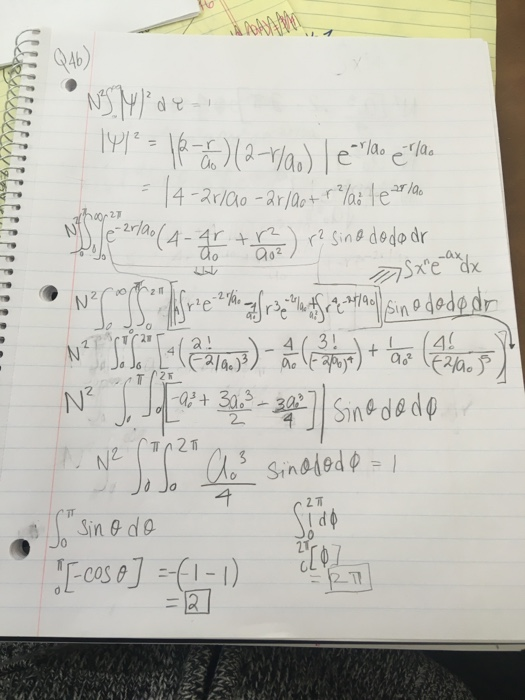 Q4b)
N²∫∫∫|Ψ|² dτ = 1
|Ψ|² = |(2 - r/a₀)(2 - r/a₀)| e^(-r/a₀) e^(-r/a₀)
= |4 - 2r/a₀ - 2r/a₀ + r²/a₀²| e^(-2r/a₀)
N² ∫₀^π ∫₀^∞ ∫₀^2π e^(-2r/a₀) (4 - 4r/a₀ + r²/a₀²) r² sinθ dθ dφ dr
⇒ ∫xⁿe^(-ax)dx
N² ∫₀^∞ ∫₀^π ∫₀^2π [4∫r²e^(-2r/a₀) - 4/a₀ ∫r³e^(-2r/a₀) + 1/a₀² ∫r⁴e^(-2r/a₀)] sinθ dθ dφ dr
N² ∫₀^π ∫₀^2π [4(2!/(-2/a₀)³) - 4/a₀ (3!/(-2/a₀)⁴) + 1/a₀² (4!/(-2/a₀)⁵)]
N² ∫₀^π ∫₀^2π [-a₀³ + 3a₀³/2 - 3a₀³/4] | sinθ dθ dφ
N² ∫₀^π ∫₀^2π a₀³/4 sinθ dθ dφ = 1
∫₀^π sinθ dθ
∫₀^2π 1 dφ
₀^π[-cosθ] = -(-1-1)
₀^2π[φ]
= 2
= 2π